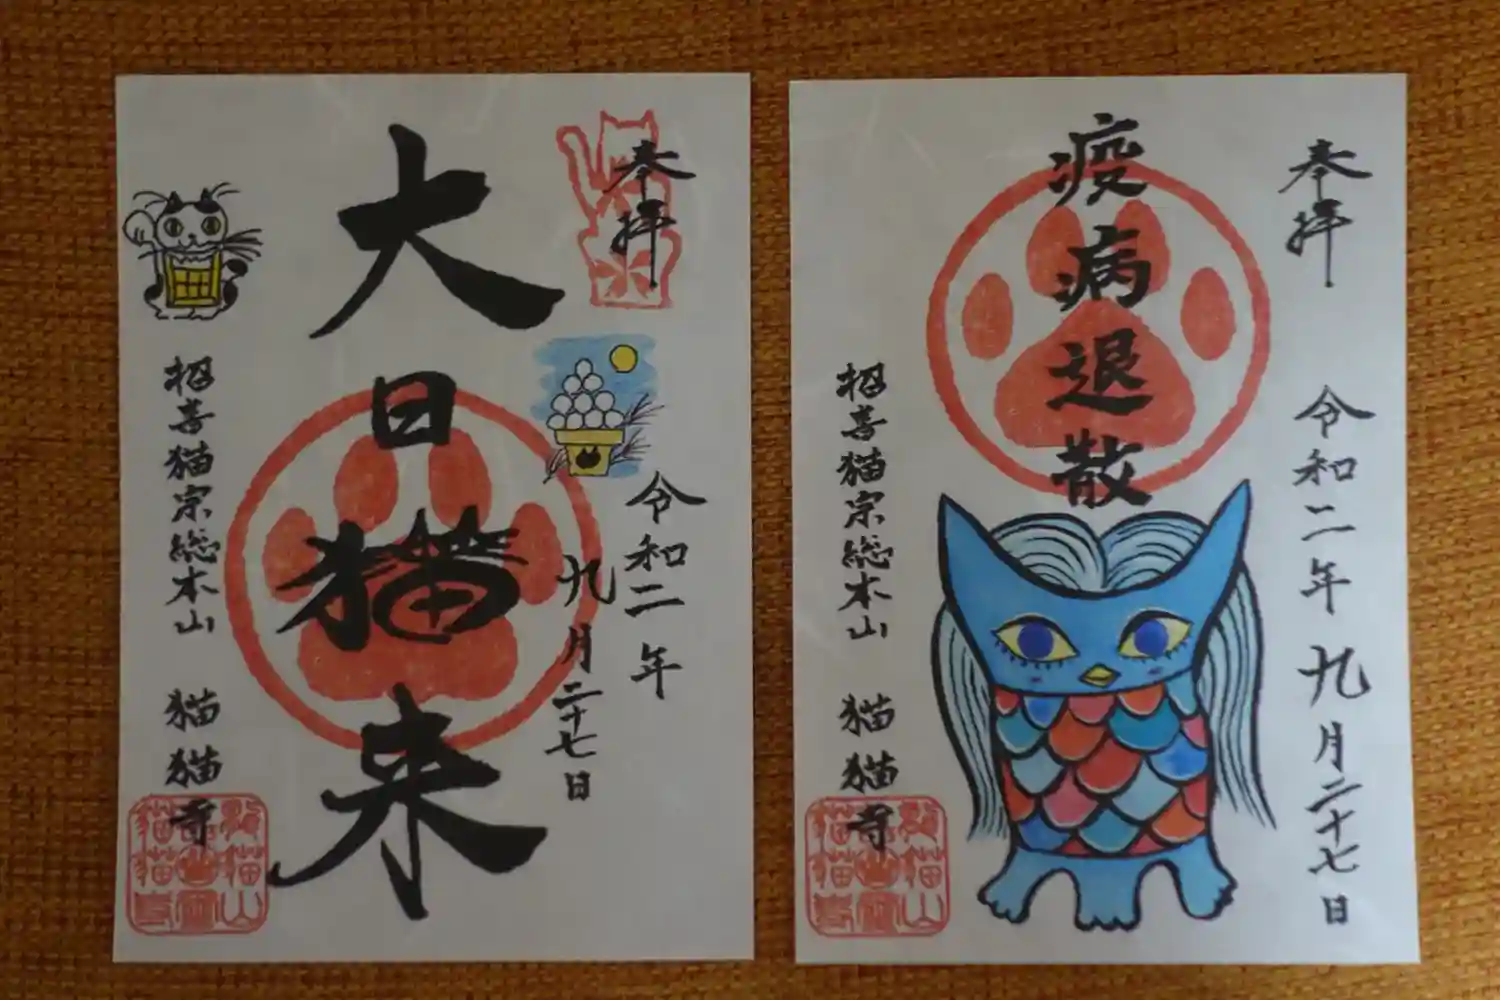 奉拝
大日猫来
令和二年
九月二十七日
招喜猫宗総本山 猫猫寺
奉拝
疫病退散
令和二年九月二十七日
招喜猫宗総本山 猫猫寺